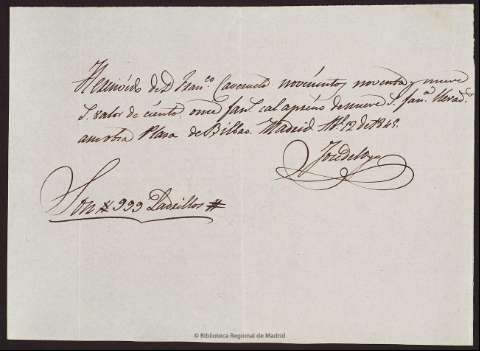 He recivido de D. Fran.co Caserulo novecientos noventa y nueve
r.s valor de ciento once fan.s cal a precio de nueve r.s fan.a llevada
a mi obra Plasa de Bilbao. Madrid 12 de 1841.
José de
Son # 999 Ladrillos #
© Biblioteca Regional de Madrid